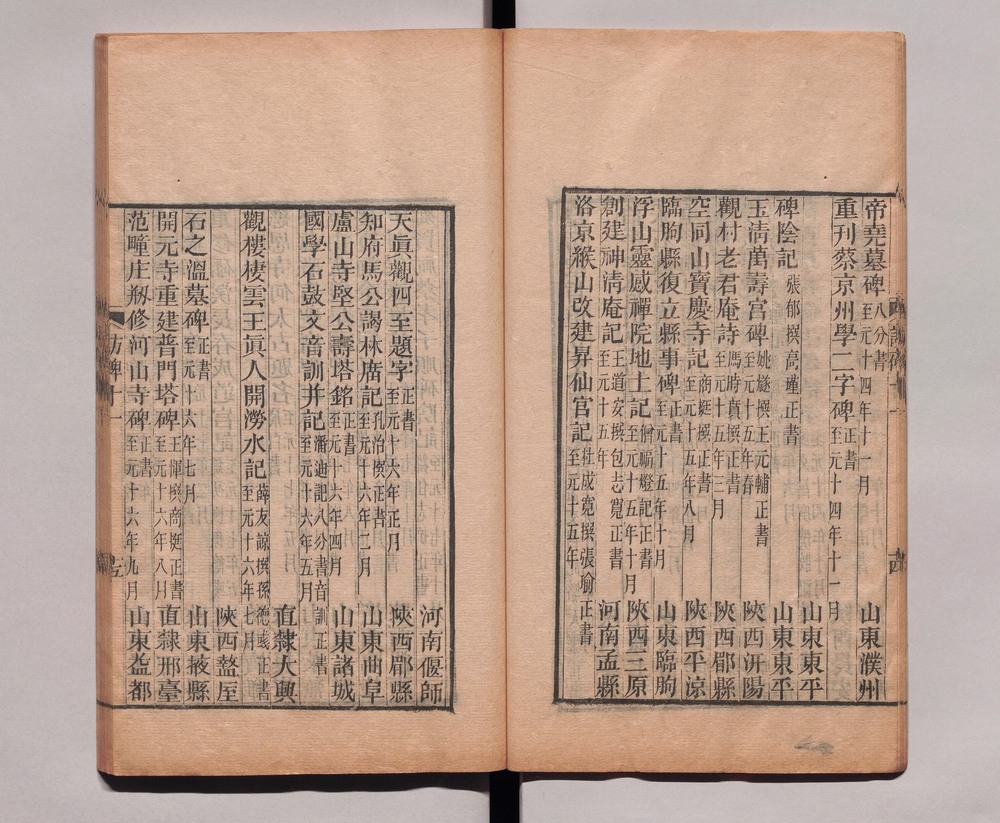 帝堯墓碑 八分書 至元十四年十一月 山東濮州
重刊蔡京州學二字碑 正書 至元十四年十一月 山東東平
碑陰記 張郁撰高瑾正書 山東東平
玉清萬壽宮碑 姚燧撰王元輔正書 至元十五年春 陝西汧陽
觀村老君庵詩 馮時賁撰正書 至元十五年三月 陝西郿縣
空同山寶慶寺記 商挺撰正書 至元十五年八月 陝西平涼
臨朐縣復立縣事碑 正書 至元十五年十月 山東臨朐
浮山靈感禪院地土記 僧 記正書 至元十五年十月 陝西三原
創建神清庵記 王道安撰包志寬正書 至元十五年 河南孟縣
洛京緱山改建昇仙宮記 杜成寬撰張瑜正書 至元十五年
河南偃師
天眞觀四至題字 正書 至元十六年正月 陝西郿縣
知府馬公謁林廟記 孔治撰正書 至元十六年二月 山東曲阜
盧山寺堅公壽塔銘 正書 至元十六年四月 山東諸城
國學石鼓文音訓并記 潘迪記八分書音訓正書 至元十六年五月
直隸大興
觀樓棲雲王眞人開澇水記 薛友諒撰孫德彧正書 至元十六年七月
陝西盩厔
石之溫墓碑 正書 至元十六年七月 山東掖縣
開元寺重建普門塔碑 王惲撰商挺正書 至元十六年八月 直隸邢臺
范疃庄剏修河山寺碑 正書 至元十六年九月 山東益都
訪碑十一